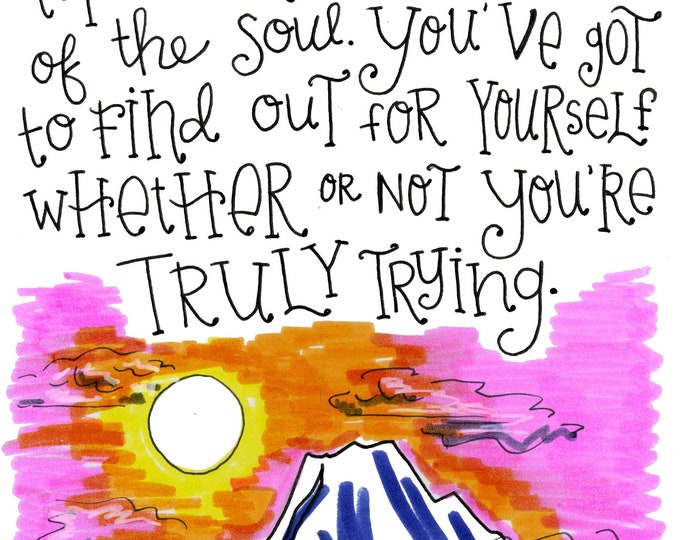 of the soul. You've got
to find out for yourself
whether or not you're
truly trying.